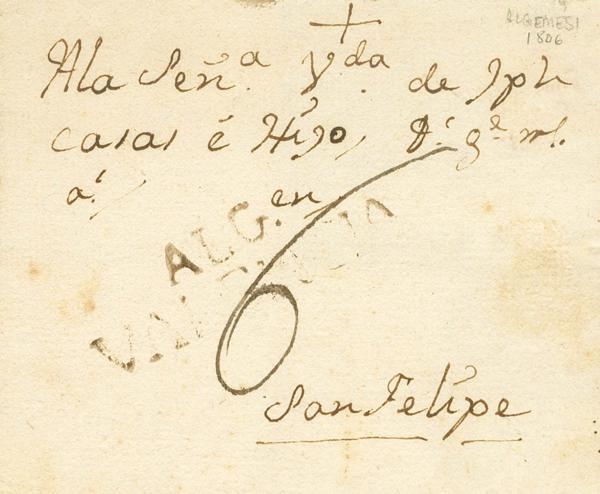 ALGEMESI
1806
+
A la Señ.ª V.da de Jph
casas é Hijo, D.s g.e m.s
a.s / en
ALG.
VALENCIA
6
San Felipe